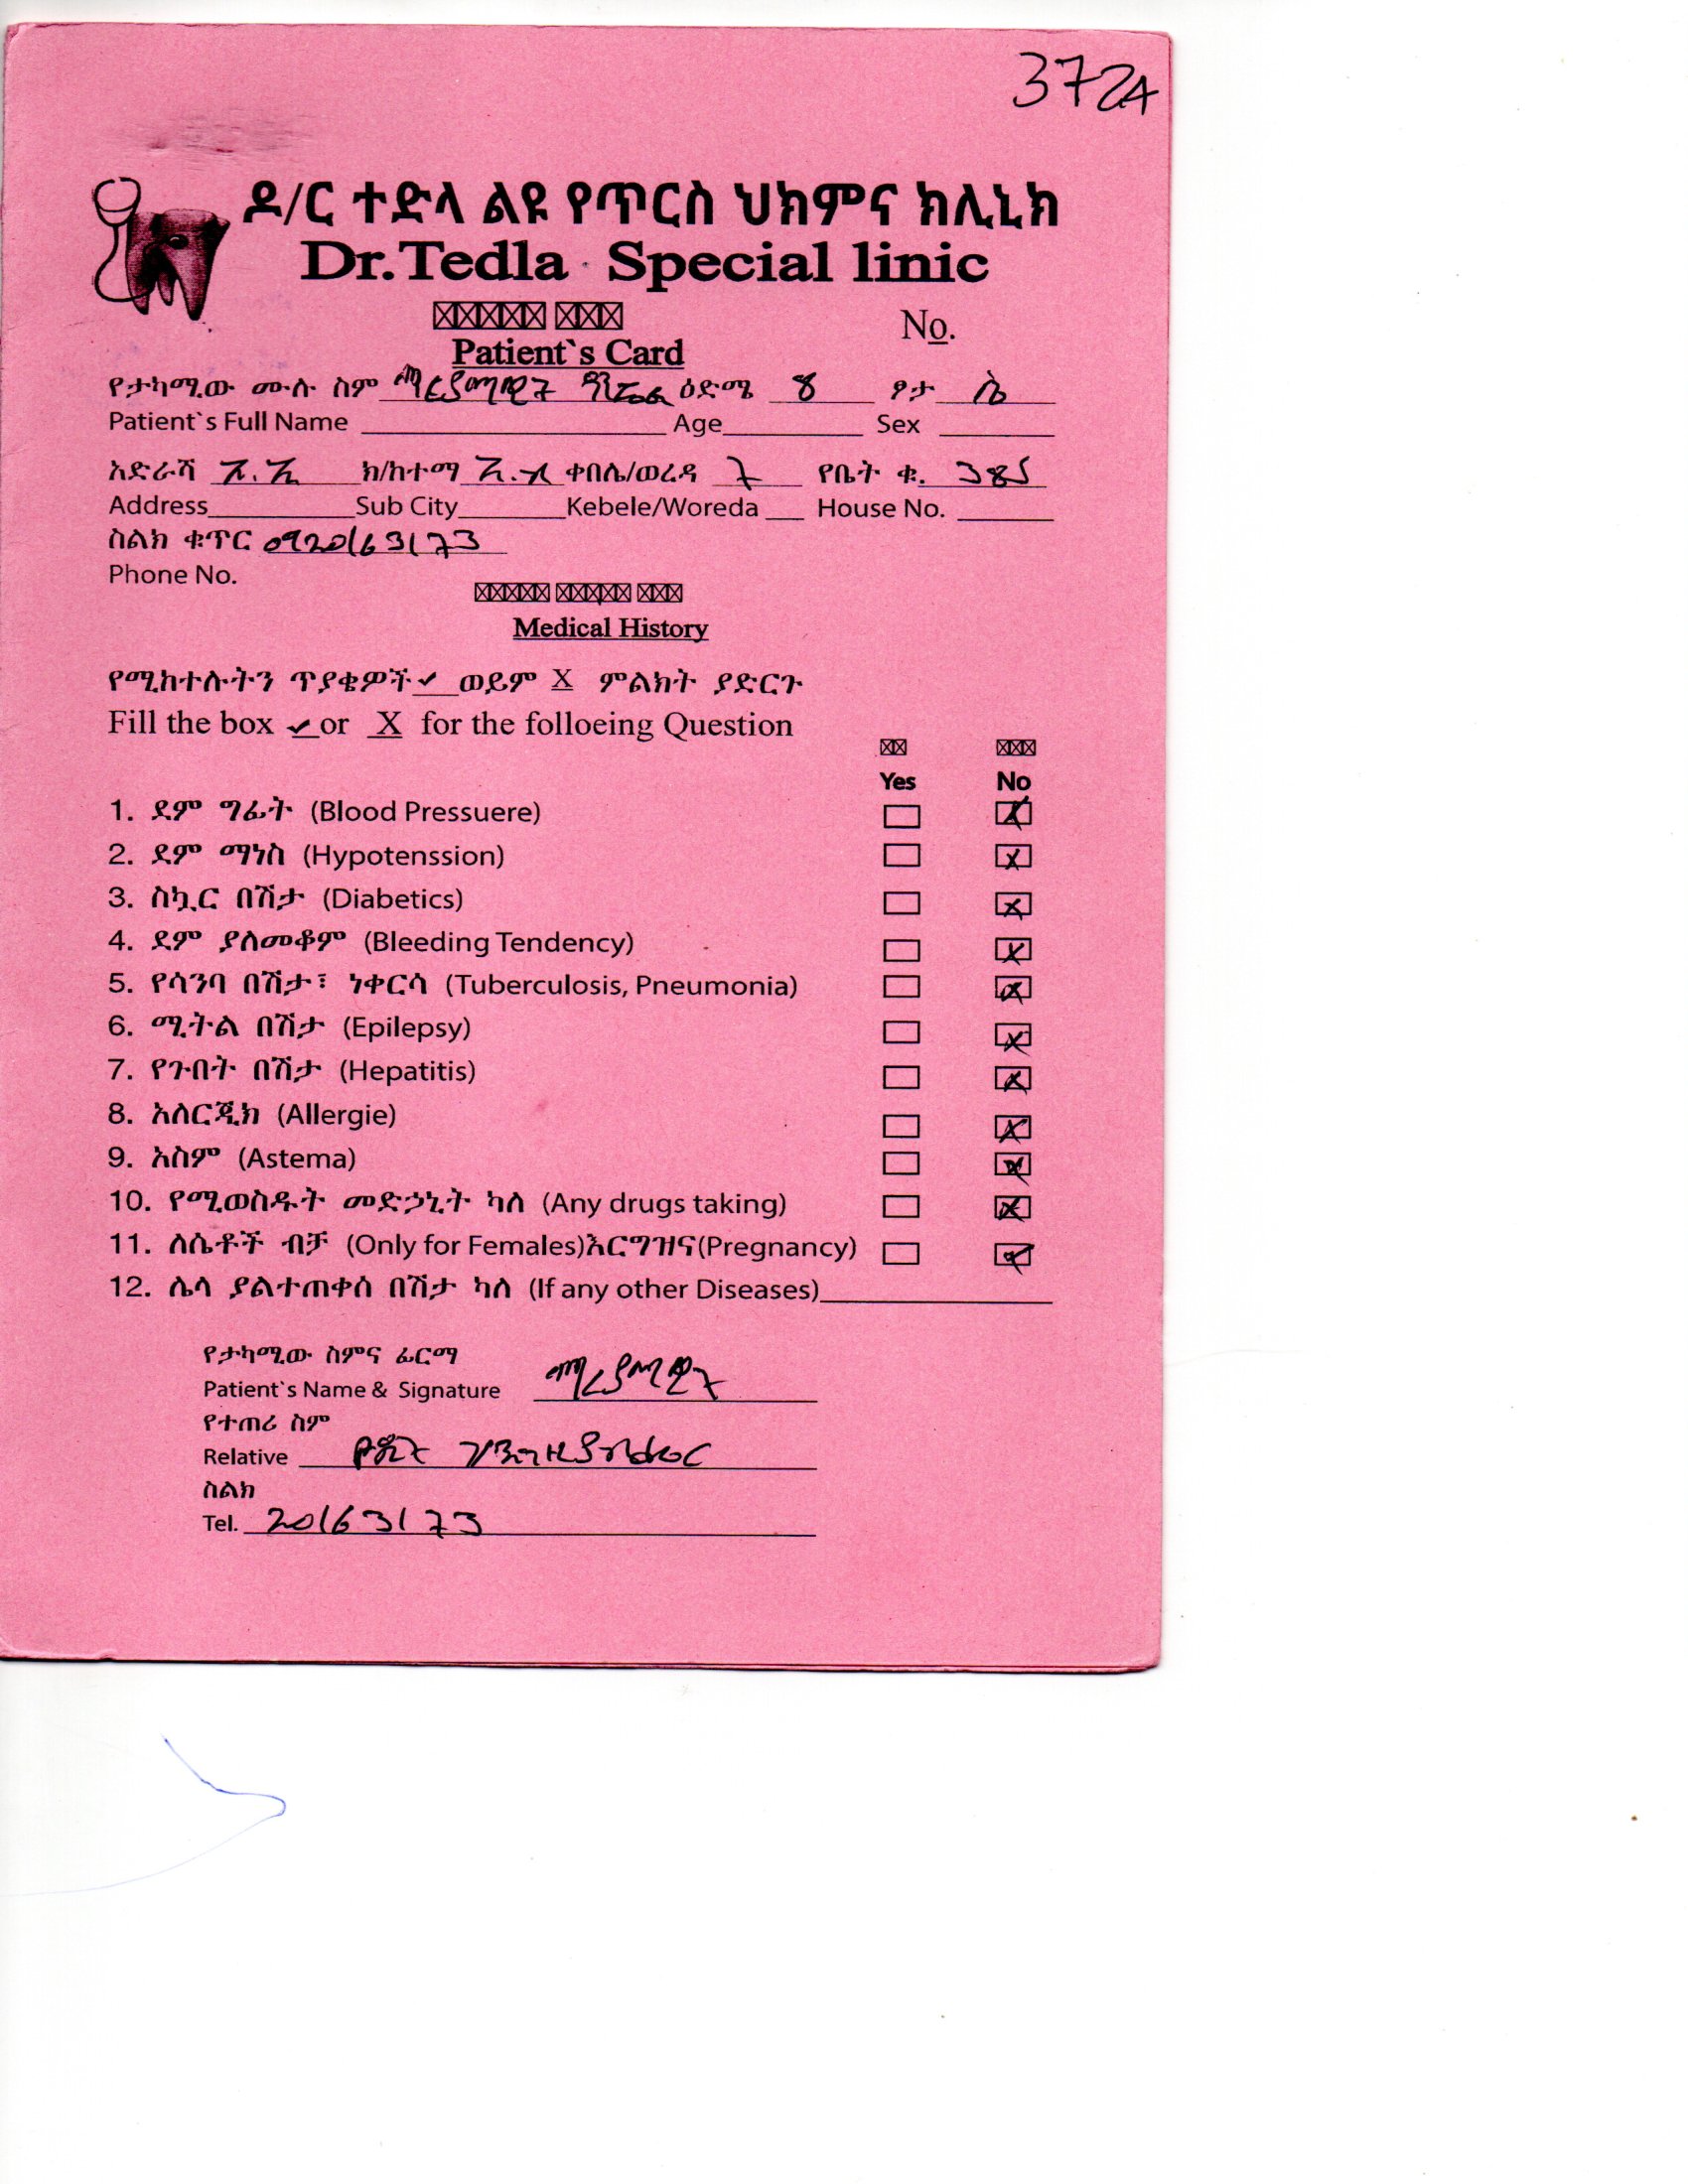 3724
ዶ/ር ተድላ ልዩ የጥርስ ህክምና ክሊኒክ
Dr.Tedla Special linic
No.
Patient`s Card
የታካሚው ሙሉ ስም ማርያማዊት ዳንኤል ዕድሜ 8 ፆታ ሴ
Patient`s Full Name Age Sex
አድራሻ አ.አ ክ/ከተማ ቀበሌ/ወረዳ 7 የቤት ቁ. 385
Address Sub City Kebele/Woreda House No.
ስልክ ቁጥር 0920163173
Phone No.
Medical History
የሚከተሉትን ጥያቄዎች ✓ ወይም X ምልክት ያድርጉ
Fill the box ✓ or X for the folloeing Question
Yes No
1. ደም ግፊት (Blood Pressuere)
2. ደም ማነስ (Hypotenssion)
3. ስኳር በሽታ (Diabetics)
4. ደም ያለመቆም (Bleeding Tendency)
5. የሳንባ በሽታ፣ ነቀርሳ (Tuberculosis, Pneumonia)
6. ሚትል በሽታ (Epilepsy)
7. የጉበት በሽታ (Hepatitis)
8. አለርጂክ (Allergie)
9. አስም (Astema)
10. የሚወስዱት መድኃኒት ካለ (Any drugs taking)
11. ለሴቶች ብቻ (Only for Females)እርግዝና(Pregnancy)
12. ሌላ ያልተጠቀሰ በሽታ ካለ (If any other Diseases)
የታካሚው ስምና ፊርማ
Patient`s Name & Signature ማርያማዊት
የተጠሪ ስም
Relative
ስልክ
Tel. 20163173